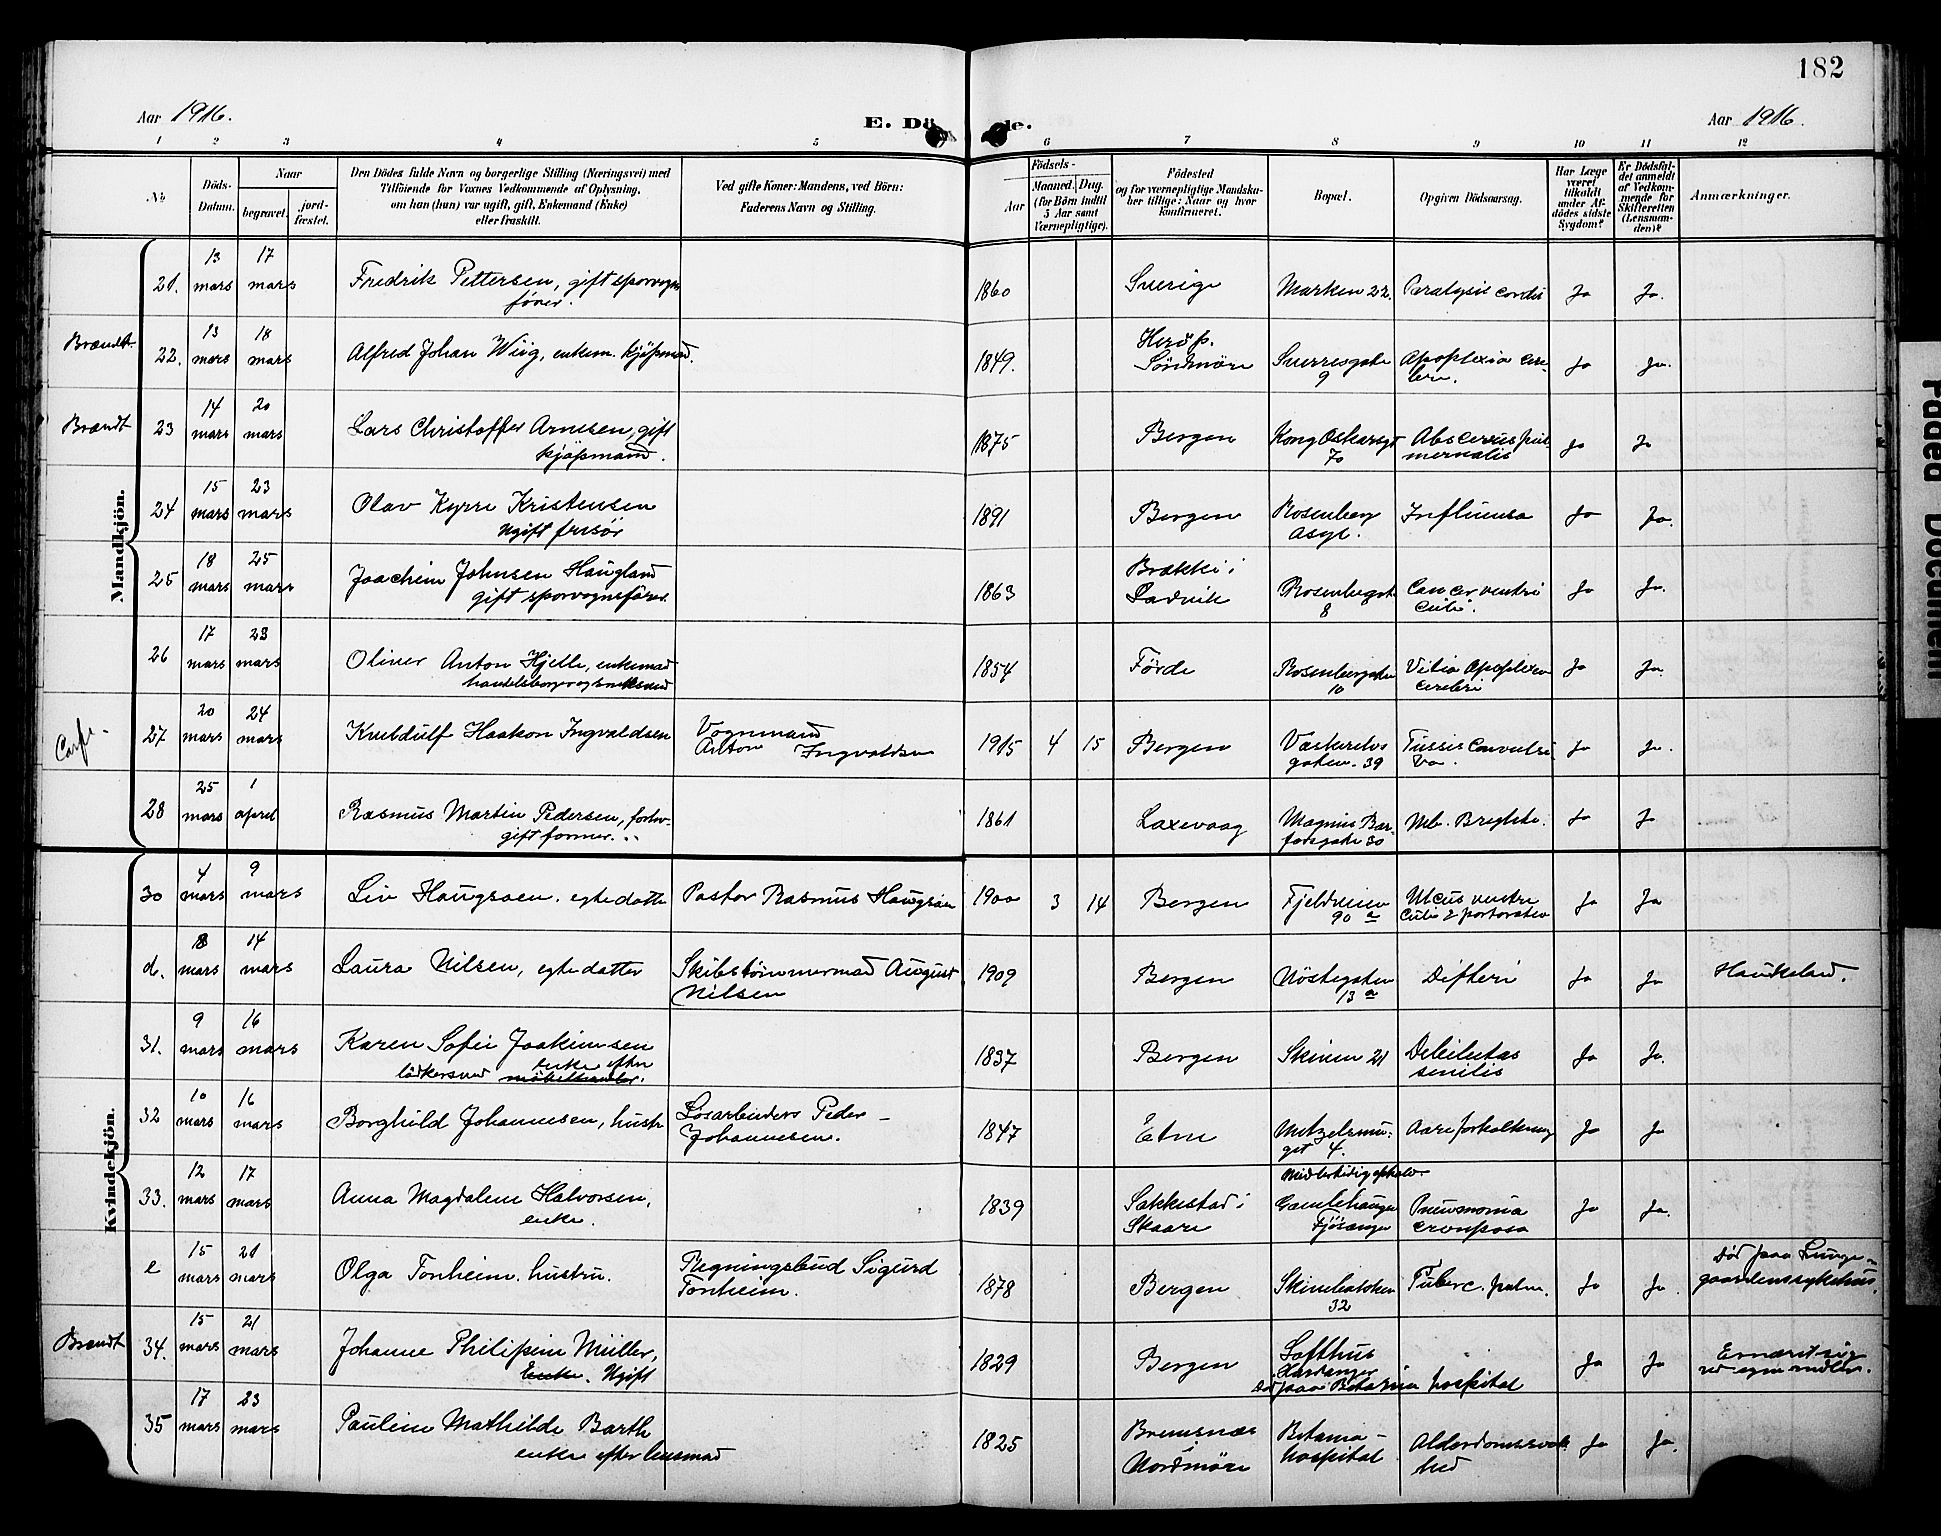 182
Aar 1916.
E. Dö de.
Aar 1916.
1 2 3 4 5 6 7 8 9 10 11 12
No.
Döds-Datum.
Naar
begravet.
jord-fæstet.
Den Dödes fulde Navn og borgerlige Stilling (Næringsvei) med
Tilföiende for Voxnes Vedkommende af Oplysning,
om han (hun) var ugift, gift, Enkemand (Enke)
eller fraskilt.
Ved gifte Koner: Mandens, ved Börn:
Faderens Navn og Stilling.
Födsels-
Aar
Maaned. Dag.
(for Börn indtil
5 Aar samt
Værnepligtige).
Födested
og for værnepligtige Mandska-
ber tillige: Naar og hvor
konfirmeret.
Bopæl.
Opgiven Dödsaarsag.
Har Læge
været
tilkaldt
under Af-
dödes sidste
Sygdom?
Er Dödsfal-
det anmeldt
af Vedkom-
mende for
Skifteretten
(Lensman-
den)?
Anmærkninger.
Mandkjön.
21. 13 mars 17 mars Fredrik Pettersen, gift sporvogns
fører. 1860 Sverige Marken 22. Paralysis cordis Ja Ja.
Brændt. 22. 13 mars 18 mars Alfred Johan Wiig, enkem. kjøpmad. 1849. Herø p.
Søndmöre Sverresgate
9 Apoplexia cere-
bri. Ja Ja.
Brændt 23 14 mars 20 mars Lars Christoffer Arnesen, gift
kjøpmand. 1875 Bergen Kong Oskarsgt
70 Abscessus pul
monalis Ja Ja
24 15 mars 23 mars Olav Kyrre Kristensen
Ugift frisør 1891 Bergen Rosenberg
Asyl. Influensa Ja Ja.
25 18 mars 25 mars Joachim Johnsen Haugland
gift sporvognsfører. 1863 Brække i
Ladvik Rosenbergsgt
8 Cancer ventri
culi. Ja Ja.
26 17 mars 23 mars Oliver Anton Hjelle, enkemad
1854 Førde Rosenbergsgaten
10 Vitia Apoplexia
cerebri Ja Ja.
27 20 mars 24 mars Kveldulf Haakon Ingvaldsen Vognmand
Anton Ingvaldsen 1915 4 15 Bergen Vestrelvs
gaten. 39 Tussis Convulsi
va. Ja Ja.
28 25 mars 1 april Rasmus Martin Pedersen, forhv.
gift former. 1861 Laxevaag Magnus Bar-
fodsgate 30 Mb. Brightii. Ja Ja
Kvindekjön.
30 4 mars 9 mars Liv Haugsøen. egte datte Pastor Rasmus Haugsøen 1900 3 14 Bergen Fjeldveien
90 a Ulcus ventri
culi & perforatio Ja Ja
d. 8 mars 14 mars Laura Nilsen, egte datter Skibstømmermad August
Nilsen 1909 Bergen Nöstegaten
13 a Difteri Ja Ja Haukeland.
31. 9 mars 16 mars Karen Sofie Joakimsen
enke efter
mobelhandler. 1837 Bergen Skiven 21 Debilitas
senilis Ja Ja.
32 10 mars 16 mars Borghild Johannesen, hustr Løsarbeiders Peder
Johannesen. 1847 Etne Netzelsmu-
get 4. Aareforkalkning Ja Ja
33. 12 mars 17 mars Anna Magdalene Halvorsen,
enke. 1839 Sakkestad i
Skaare Midlertidig ophold.
Gamlehaugen
Fjösanger Pneumonia
crouposa Ja Ja.
e 15 mars 21 mars Olga Tonheim. hustru. Regningsbud Sigurd
Tonheim. 1878 Bergen Skivebakken
32 Tuberc. pulm. Ja Ja. Død paa Lunge-
gaardenssykehus.
Brændt 34. 15 mars 21 mars Johanne Philipine Müller,
Enke. Ugift 1829 Bergen Lofthus
Hardanger
Død paa Betania hospital Ja Ja
35 17 mars 23 mars Pauline Mathilde Barth
enke efter lensmad 1825 Bremsnæs
Nordmöre Betania-
hospital Alderdomssvak
hed Ja Ja.
Paded Document